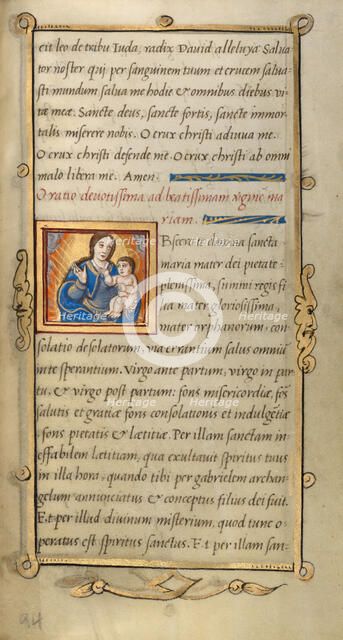 cit leo de tribu Iuda, radix Dauid alleluya Salua
tor noster qui per sanguinem tuum et crucem salua-
sti mundum salua me hodie & omnibus diebus vi
tæ meæ. Sancte deus, sancte fortis, sancte immor-
talis miserere nobis. O crux christi adiuua me.
O crux christi defende me. O crux christi ab omni
malo libera me. Amen.
Oratio deuotissima ad beatissimam virginem ma
riam.
Obsecro te domina sancta
maria mater dei pietate
plenissima, summi regis fi
lia mater gloriosissima,
mater orphanorum, con-
solatio desolatorum, via errantium salus omniũ
in te sperantium. Virgo ante partum, virgo in par
tu, & virgo post partum: fons misericordiæ, fõs
salutis et gratiæ fons consolationis et indulgẽtiæ
, fons pietatis & lætitiæ. Per illam sanctam in-
effabilem lætitiam, qua exultauit spiritus tuus
in illa hora, quando tibi per gabrielem archan-
gelum annunciatus & conceptus filius dei fuit.
Et per illud diuinum misterium, quod tunc o-
peratus est spiritus sanctus. Et per illam san-
heritage-images
heritage-images
94